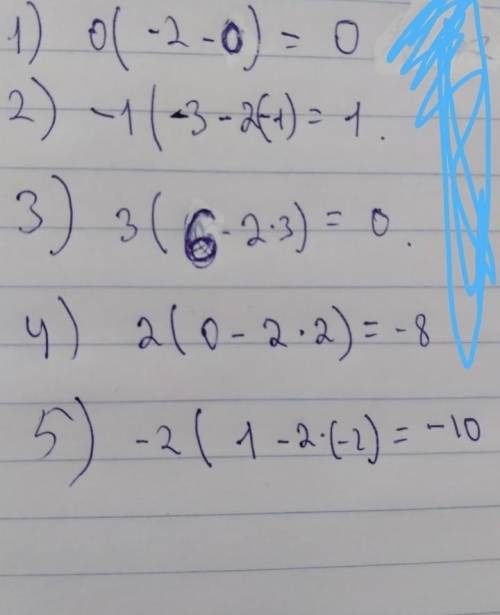 1) 0( -2 - 0) = 0
2) -1( -3 - 2(-1) = 1.
3) 3( 6 - 2·3) = 0.
4) 2( 0 - 2·2) = -8
5) -2( 1 - 2·(-2) = -10